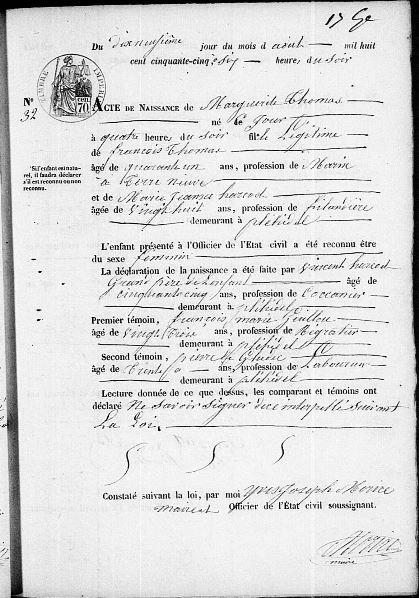 17 Ge
Du dixneuvième jour du mois d'août mil huit
cent cinquante-cinq, six heure, du soir
TIMBRE IMPÉRIAL
CENT. 70
N° 32
ACTE DE NAISSANCE de Marguerite Thomas
né Ce jour
à quatre heure, du soir fille Légitime
de françois Thomas
âgé de quarante un ans, profession de Marin
a terre neuve
*Si l'enfant est naturel, il faudra déclarer s'il est reconnu ou non reconnu.
et de Marie Jeanne
âgée de vingt huit ans, profession de filandière
demeurant à pléhérel
L'enfant présenté à l'Officier de l'Etat civil a été reconnu être
du sexe feminin
La déclaration de la naissance a été faite par Vincent
Grand père de l'enfant âgé de
cinquante cinq ans, profession de
demeurant à pléhérel
Premier témoin, françois marie
âgé de vingt ans, profession de
demeurant à pléhérel
Second témoin, pierre
âgé de trente ans, profession de Laboureur
demeurant à pléhérel
Lecture donnée de ce que dessus, les comparant et témoins ont
déclaré Ne savoir signer de ce interpellé suivant
La Loi.
Constaté suivant la loi, par moi Yves Joseph
Officier de l'État civil soussigné.
maire